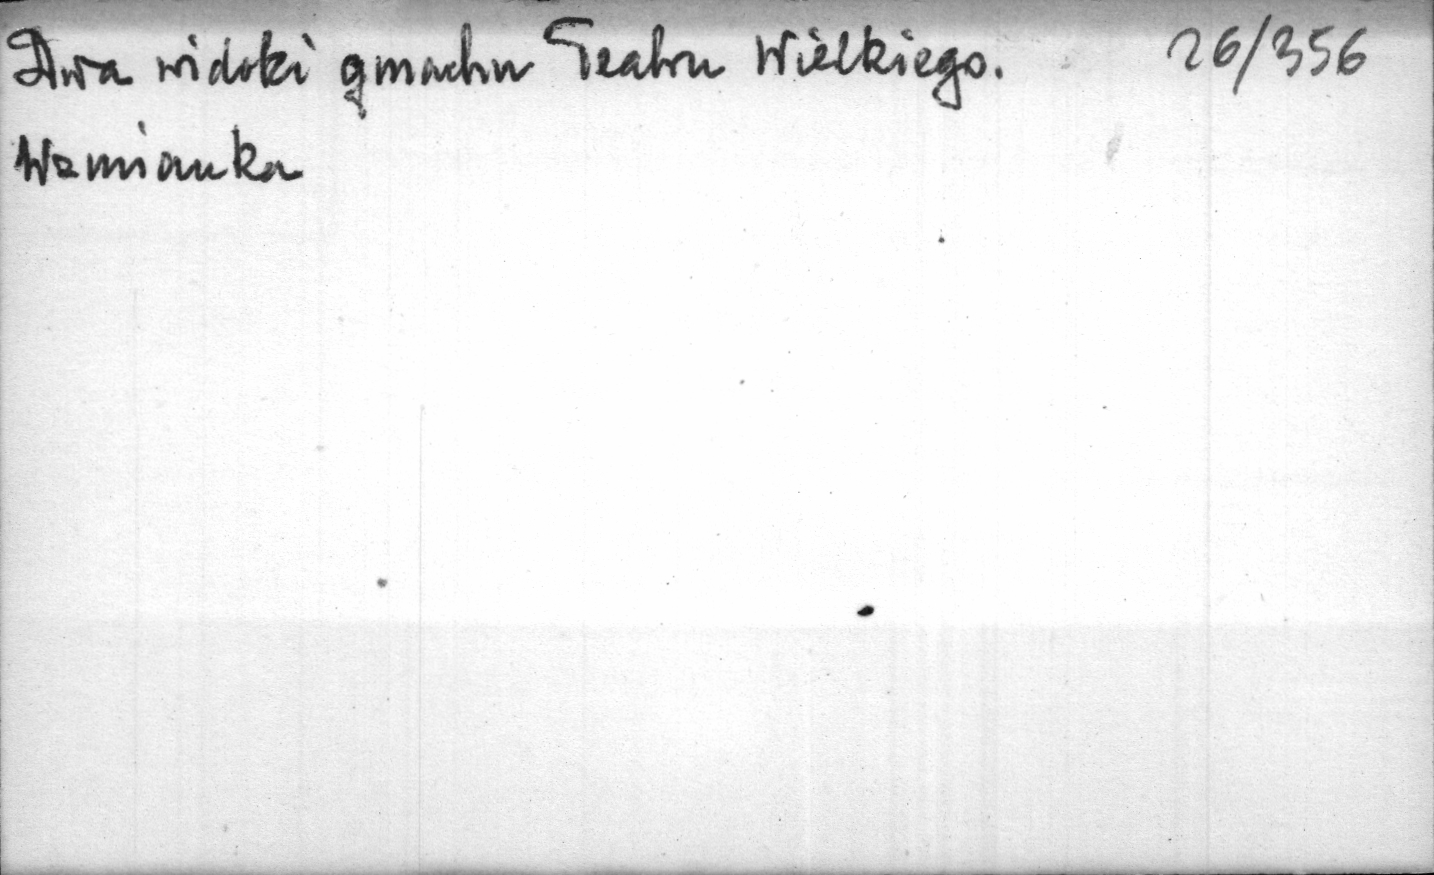 Dwa widoki gmachu Teatru Wielkiego. 26/356
Wzmianka